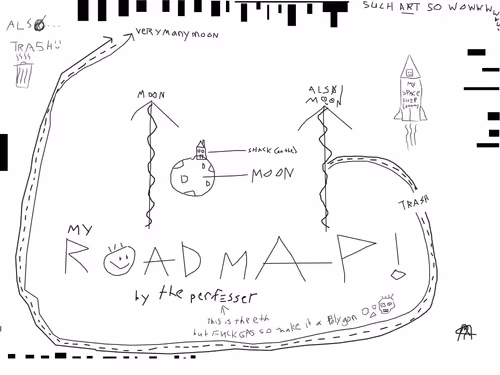 SUCH ART SO WOWWW
ALSO...
TRASH
very many moon
MOON
ALSO
MOON
MY
SPACE
SHIP
SHACK
MOON
TRASH
MY
ROADMAP!
by the perfesser
this is the eth
but FUCK GAS SO make it a Polygon